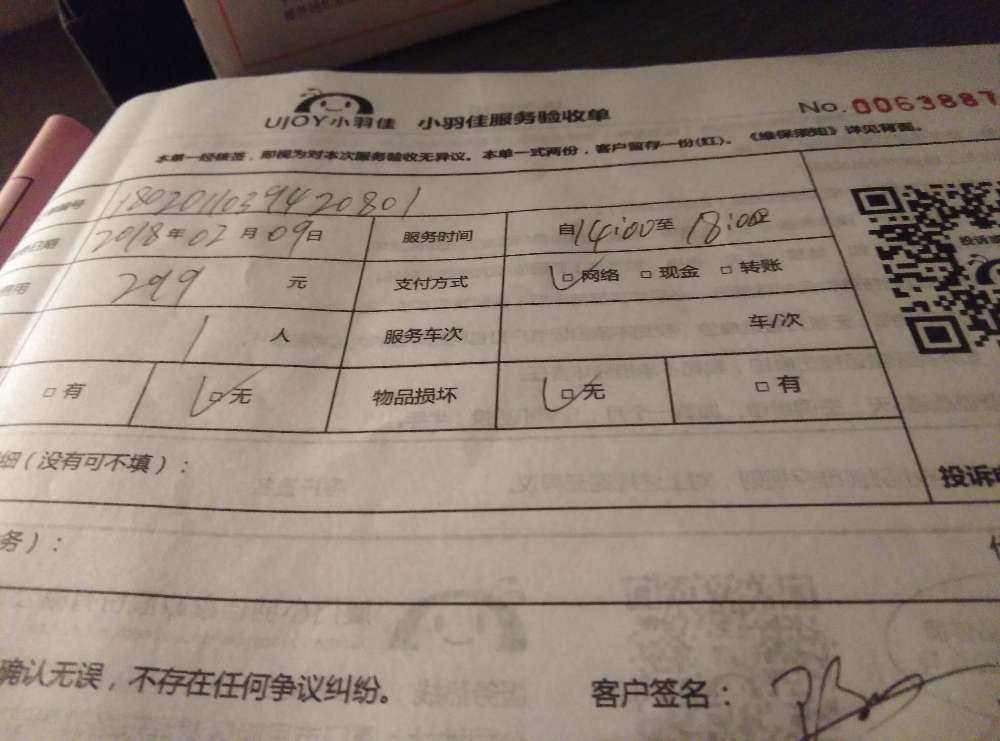 UJOY小羽佳 小羽佳服务验收单 No.0063887
本单一经核签，即视为对本次服务验收无异议。本单一式两份，客户留存一份(红)。《维保须知》详见背面。
1802011039420801
日期 2018年02月09日 服务时间 自14:00至18:00
费用 299 元 支付方式 □网络 □现金 □转账
1 人 服务车次 车/次
□有 □无 物品损坏 □无 □有
细（没有可不填）：
投诉
务）：
确认无误，不存在任何争议纠纷。 客户签名：